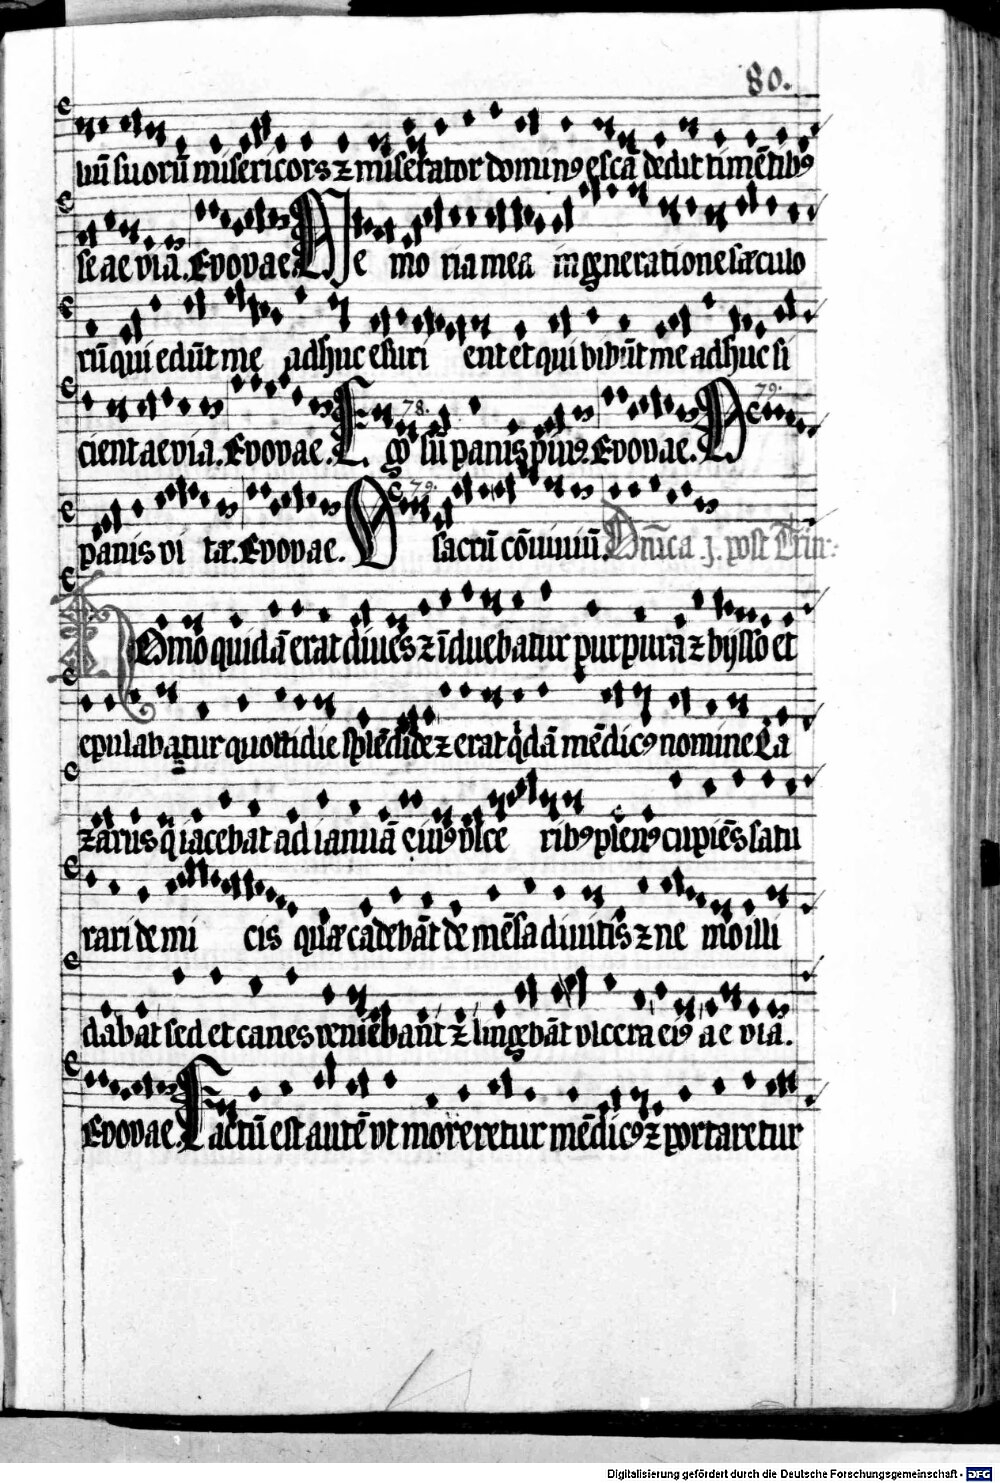 80.
liū suorū misericors ⁊ miserator dominꝰ escā dedit timētibꝰ
se aevia. Evovae. Me moria mea in gn̄eratione sæculo
rū qui edūt me adhuc esuri ent et qui bibūt me adhuc si
cient aevia. Evovae. Ego 78. sū panis viuꝰ. Evovae. 79.
panis vi tæ. Evovae. O 79. sacrū cōuiuiū. Dn̄ica j. post Trin:
Homo quidā erat diues ⁊ īduebatur purpura ⁊ bysso et
epulabatur quottidie splēdide ⁊ erat q̇dā mēdicꝰ nomine La
zarus q̇ iacebat ad ianuā eiuꝰ vlce ribꝰ plenꝰ cupiēs satu
rari de mi cis quæ cadebāt de mēsa diuitis ⁊ ne mo illi
dabat sed et canes veniebant ⁊ lingebāt vlcera eiꝰ aevia.
Evovae. Factū est autē vt moreretur mēdicꝰ ⁊ portaretur
Digitalisierung gefördert durch die Deutsche Forschungsgemeinschaft - DFG